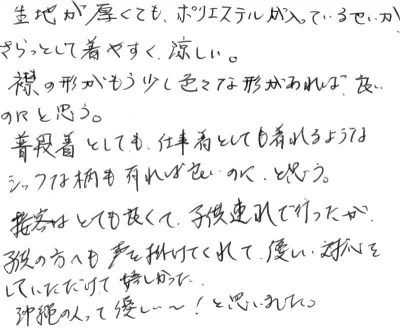 生地が厚くても、ポリエステルが入っているせいか
さらっとして着やすく、涼しい。
襟の形がもう少し色々な形があれば、良い
のにと思う。
普段着としても、仕事着としても着れるような
シックな柄も有れば良いのに、と思う。
接客はとても良くて、子供連れで行ったが、
子供の方へも声を掛けてくれて、優しい対応を
していただけて嬉しかった。
沖縄の人って優しい〜!と思いました。